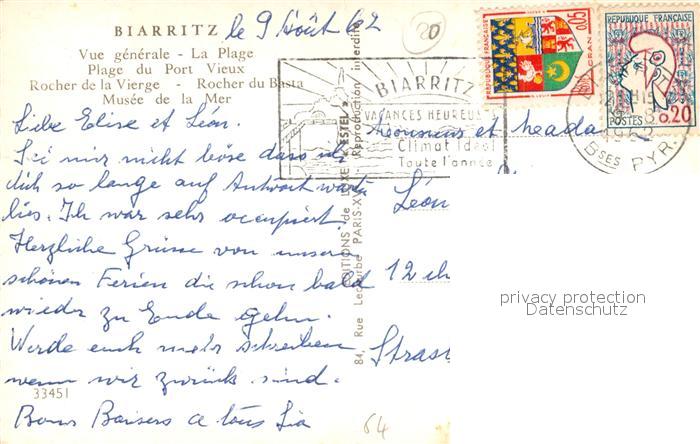 BIARRITZ
le 9 Août 62
20
Vue générale - La Plage
Plage du Port Vieux
Rocher de la Vierge - Rocher du Basta
Musée de la Mer
Liebe Elise et Léon.
Sei mir nicht böse dass ich
dich so lange auf Antwort warten
lies. Ich war sehr occupiert.
Herzliche Grüsse von unsern
schönen Ferien die schon bald
wieder zu Ende gehn.
Werde euch mehr schreiben
wenn wir zurück sind.
33451
Bons Baisers a tous Lia
ÉDITIONS de LUXE "ESTEL"
Reproduction interdite
84, Rue Lecourbe PARIS-XV
BIARRITZ
VACANCES HEUREUSES
Climat Idéal
Toute l'année
REPUBLIQUE FRANÇAISE
0,05
ORAN
REPUBLIQUE FRANÇAISE
POSTES
0,20
1962
BSES PYR.
Monsieur et Mada
Léon
12
Stras
64
privacy protection
Datenschutz